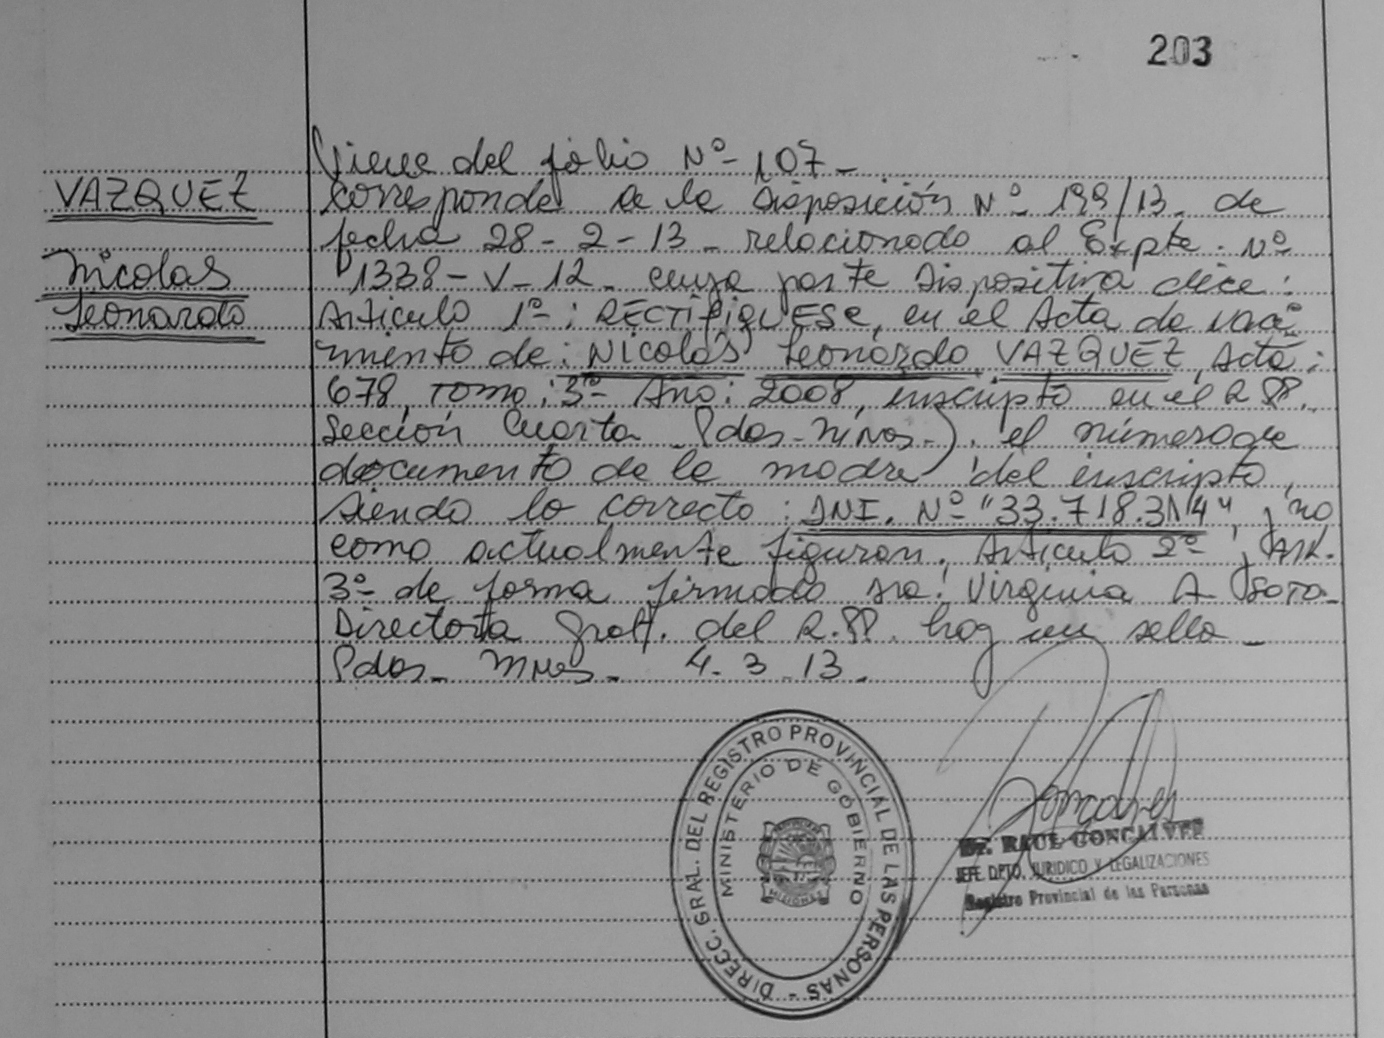 203
VAZQUEZ
Nicolas
Leonardo
Viene del folio Nº- 107-
corresponde a la Disposición Nº 199/13. de
fecha 28-2-13- relacionado al Expte. Nº
1338-V-12. cuya parte Dispositiva dice:
Articulo 1º: RECTIFIQUESE, en el Acta de naci-
miento de: Nicolás Leonardo VAZQUEZ, Acta:
678, Tomo: 3º Año: 2008, inscripto en el R.PP.
Sección Cuarta Pdas-Mnes-). el número de
documento de la madre del inscripto,
siendo lo correcto: DNI. Nº "33.718.314", y no
como actualmente figuran. Articulo 2º, Art.
3º de forma firmado sra: Virginia A Soto-
Directora Gral. del R.PP. hay un sello-
Pdas- Mnes- 4.3.13.
DIRECC. GRAL. DEL REGISTRO PROVINCIAL DE LAS PERSONAS -
MINISTERIO DE GOBIERNO
MISIONES
Dr. RAUL GONCALVES
JEFE DPTO. JURIDICO Y LEGALIZACIONES
Registro Provincial de las Personas